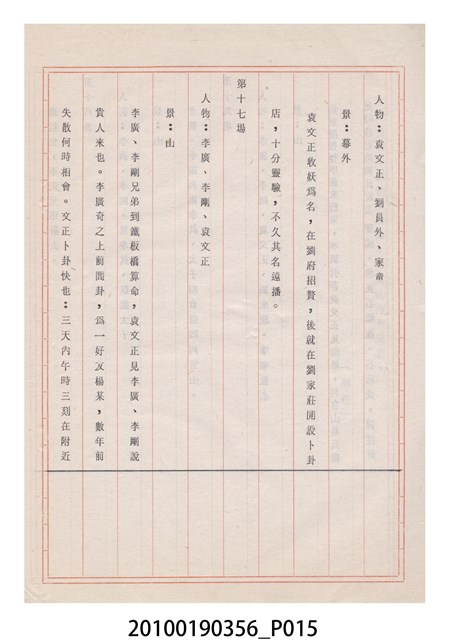 人物：袁文正、劉員外、家齒
景：幕外
袁文正收妖爲名，在劉府招贅，後就在劉家莊開設卜卦
店，十分靈驗，不久其名遠播。
第十七場
人物：李廣、李剛、袁文正
景：山
李廣、李剛兄弟到鐵板橋算命，袁文正見李廣、李剛說
貴人來也。李廣奇之上前問卦，爲一好友楊某，數年前
失散何時相會。文正卜卦快也：三天內午時三刻在附近
20100190356_P015